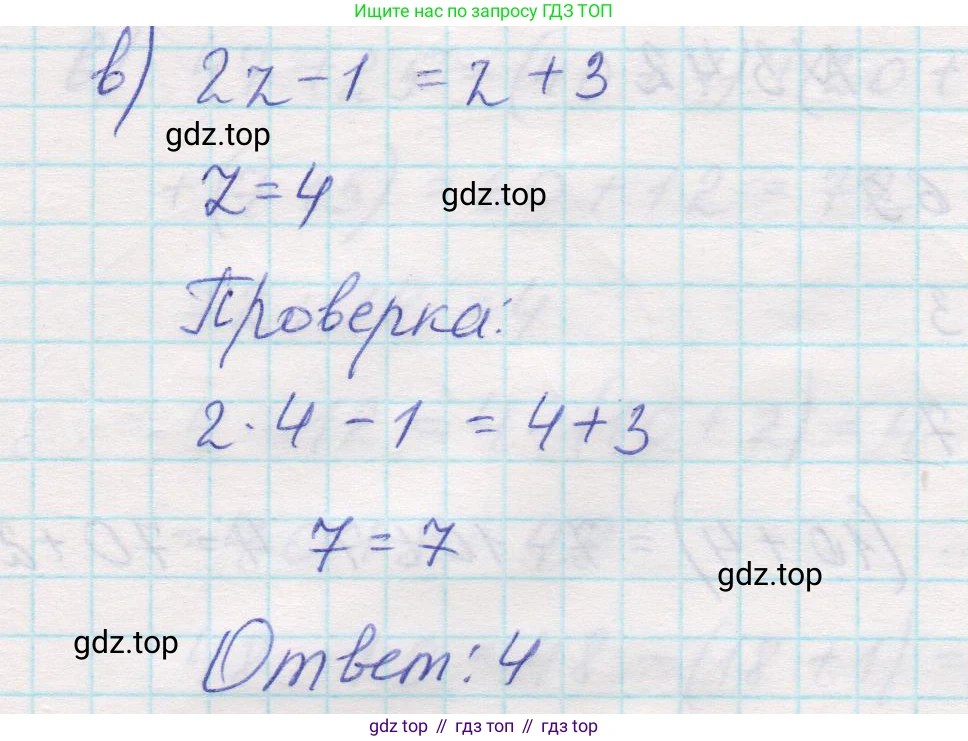 Ищите нас по запросу ГДЗ ТОП
в) 2z - 1 = z + 3
gdz.top
z = 4
gdz.top
Проверка:
2 · 4 - 1 = 4 + 3
7 = 7
gdz.top
gdz.top
Ответ: 4
gdz top // гдз топ // gdz top